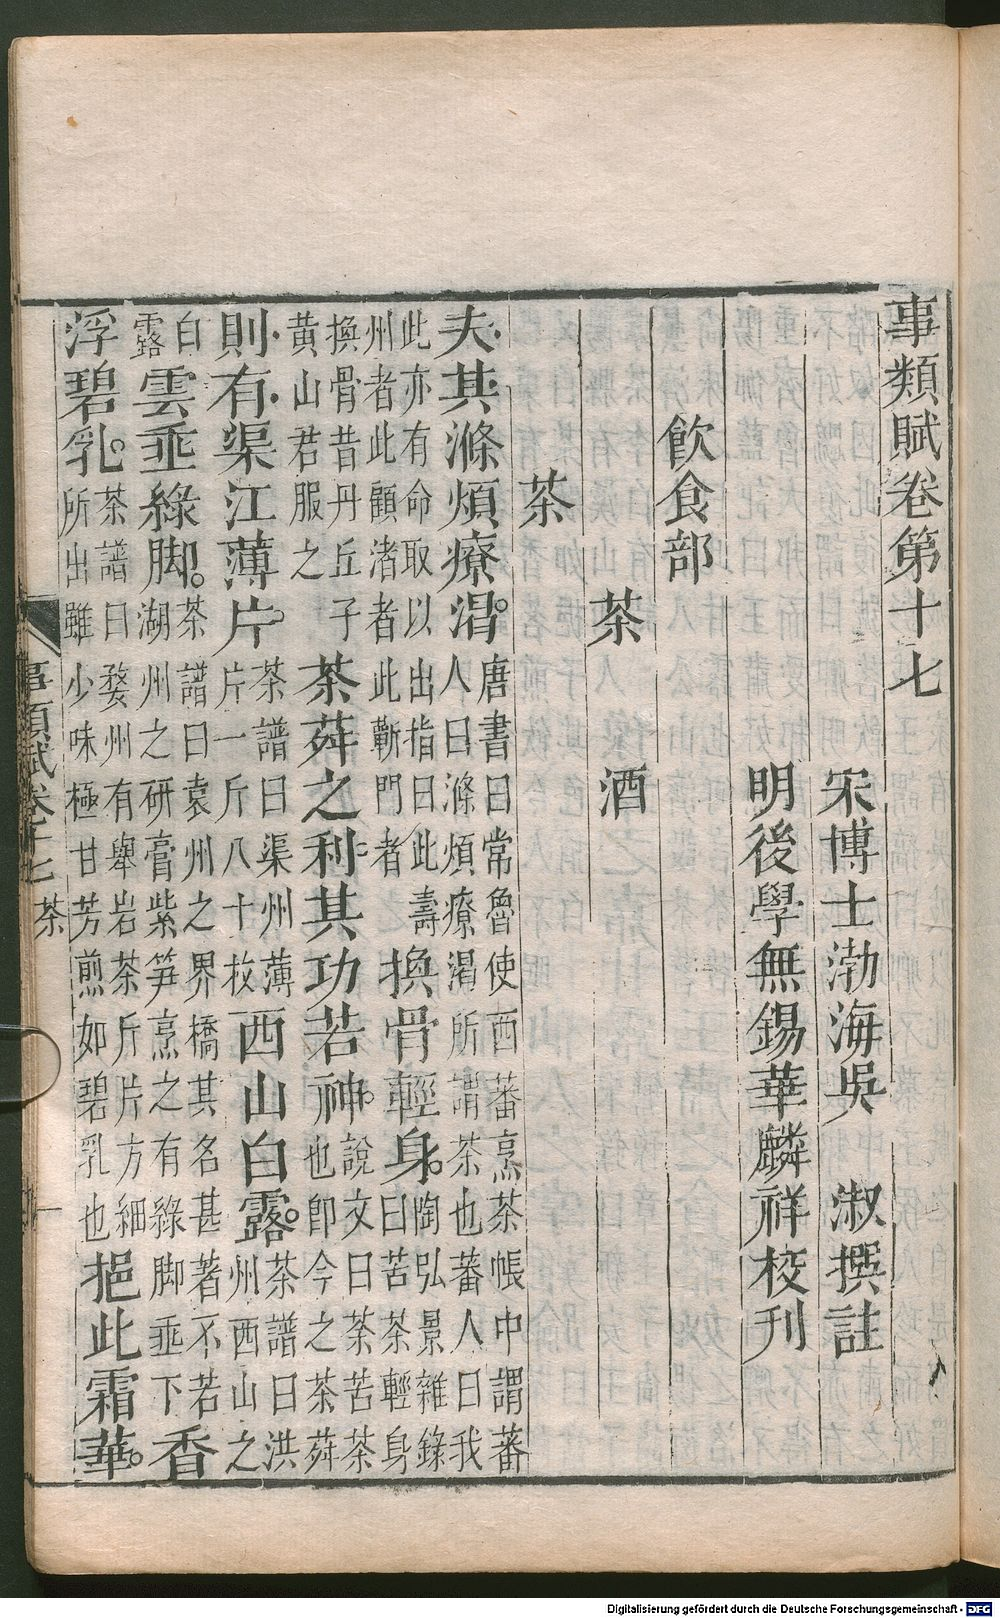 事類賦卷第十七
宋博士渤海吳 淑撰註
明後學無錫華麟祥校刊
飲食部
茶 酒
茶
夫其滌煩療渴。唐書曰常魯使西蕃烹茶帳中謂蕃人曰滌煩療渴所謂茶也蕃人曰我
此亦有命取以出指曰此壽州者此顧渚者此蘄門者換骨輕身。陶弘景雜錄曰苦茶輕身
換骨昔丹丘子黃山君服之茶荈之利其功若神。說文曰茶苦茶也即今之茶荈
則有渠江薄片。茶譜曰渠州薄片一斤八十枚西山白露。茶譜曰洪州西山之
白露雲垂綠脚。茶譜曰袁州之界橋其名甚著不若湖州之研膏紫笋烹之有綠脚垂下香
浮碧乳。茶譜曰婺州有舉岩茶斤片方細所出雖少味極甘芳煎如碧乳也挹此霜華。
事類賦卷十七 茶 一
Digitalisierung gefördert durch die Deutsche Forschungsgemeinschaft - DFG